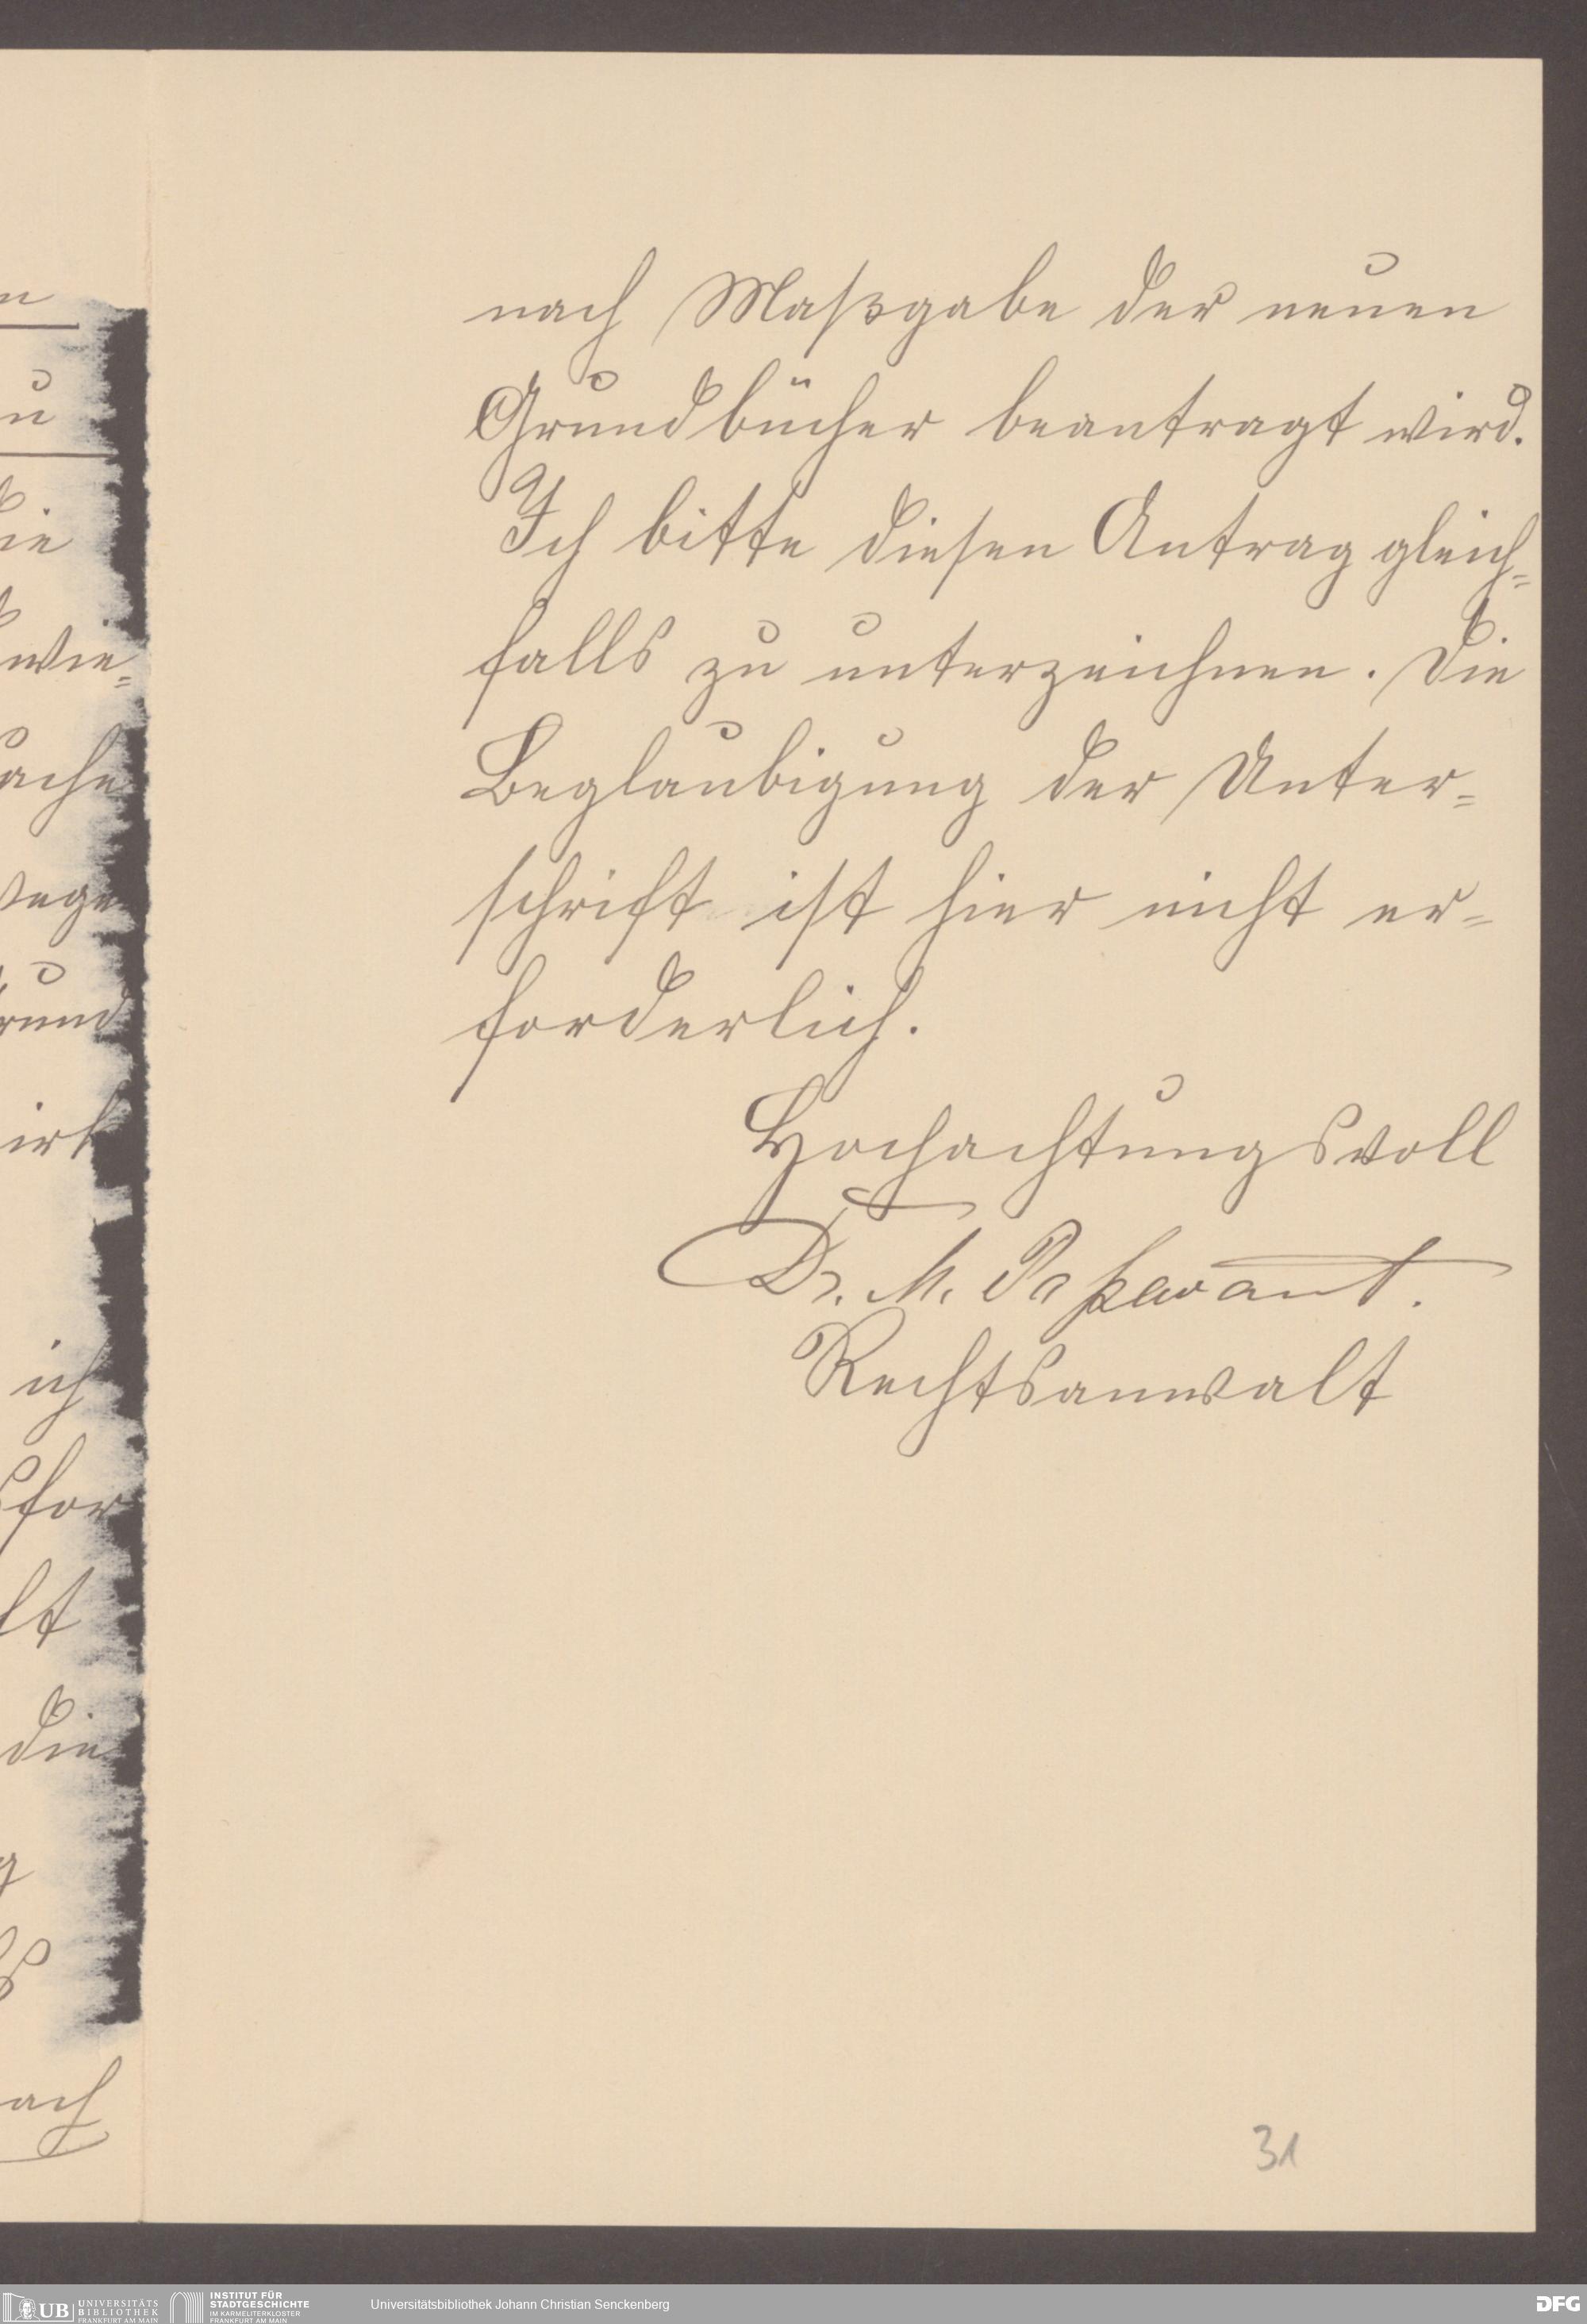 nach Maßgabe der neuen
Grundbücher beantragt wird.
Ich bitte diesen Antrag gleich=
falls zu unterzeichnen. Die
Beglaubigung der Unter=
schrift ist hier nicht er=
forderlich.
Hochachtungsvoll
Dr. M. Passavant.
Rechtsanwalt
ie
wie=
ache
ege
rund
irk
ich
sfor
lt
die
ach
31
UB UNIVERSITÄTS
BIBLIOTHEK
FRANKFURT AM MAIN
INSTITUT FÜR
STADTGESCHICHTE
IM KARMELITERKLOSTER
FRANKFURT AM MAIN
Universitätsbibliothek Johann Christian Senckenberg
DFG